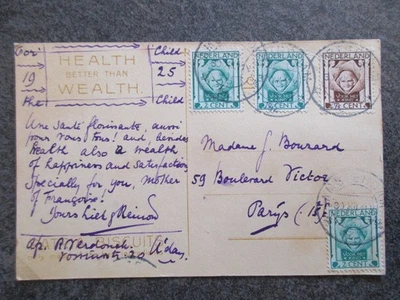 For Child
HEALTH
BETTER THAN
WEALTH.
19 25
the Child
NEDERLAND
2 CENT
NEDERLAND
7½ CENT
NEDERLAND
CENT
Une santé florissante, aussi
pour vous tous! and besides
health also a wealth
of happiness and satisfaction
Specially for you, mother
of Françoise!
Yours
Madame J. Bourard
59 Boulevard Victor
Parijs (15
af. R. Verdonck.
20 A'dam.
NEDERLAND
2 CENT